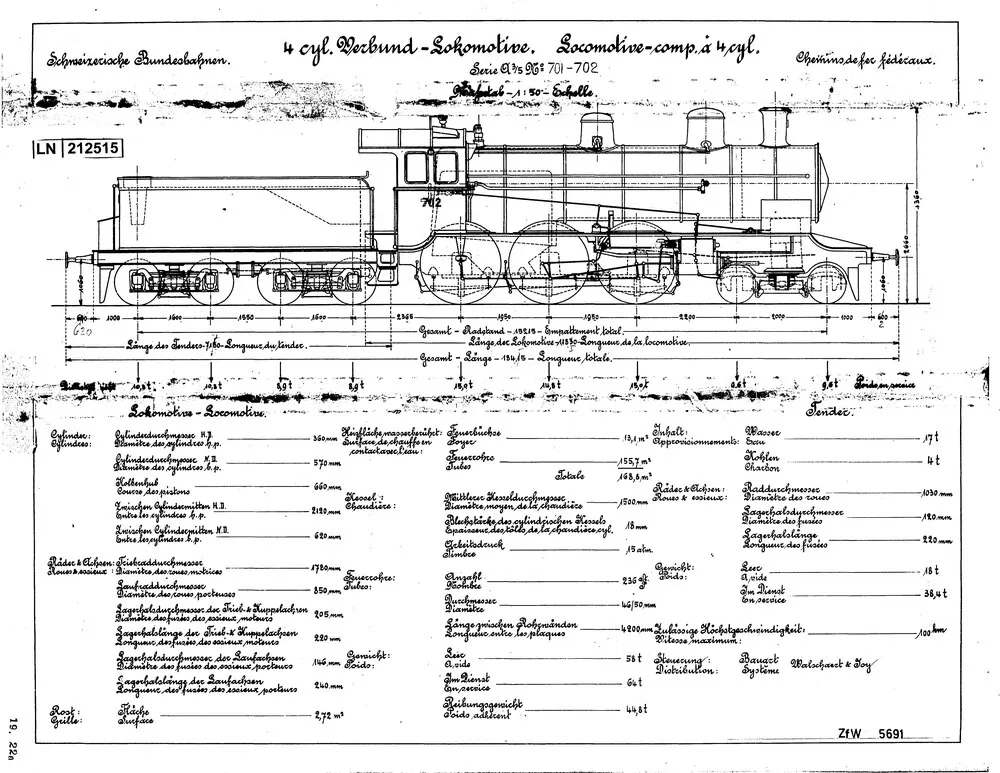 4 cyl. Verbund-Lokomotive. Locomotive-comp. à 4 cyl.
Schweizerische Bundesbahnen.
Serie A 3/5 No 701-702
Chemins de fer fédéraux.
Maßstab - 1:50 - Echelle.
LN 212515
702
600 1000 1600 1550 1600 2365 1950 2200 1000 600
630
Gesamt - Radstand - 15215 - Empattement total.
Länge des Tenders - 7180 - Longueur du tender.
Länge der Lokomotive - Longueur de la locomotive.
Gesamt - Länge - 18415 - Longueur totale.
15,0 t 14,8 t 15,0 t 9,6 t 9,6 t Poids en service
Lokomotive - Locomotive.
Cylinder:
Cylindres:
Cylinderdurchmesser H.D.
Diamètre des cylindres h.p. 360 mm
Cylinderdurchmesser N.D.
Diamètre des cylindres b.p. 570 mm
Kolbenhub
Course des pistons 660 mm
Zwischen Cylindermitten H.D.
Entre les cylindres h.p. 2120 mm
Zwischen Cylindermitten N.D.
Entre les cylindres b.p. 620 mm
Räder & Achsen:
Roues & essieux:
Triebraddurchmesser
Diamètre des roues motrices 1780 mm
Laufraddurchmesser
Diamètre des roues porteuses 850 mm
Lagerhalsdurchmesser der Trieb- & Kuppelachsen
Diamètre des fusées des essieux moteurs 205 mm
Lagerhalslänge der Trieb- & Kuppelachsen
Longueur des fusées des essieux moteurs 220 mm
Lagerhalsdurchmesser der Laufachsen
Diamètre des fusées des essieux porteurs 146 mm
Lagerhalslänge der Laufachsen
Longueur des fusées des essieux porteurs 240 mm
Rost:
Grille:
Fläche
Surface 2,72 m²
Heizfläche, wasserberührt:
Surface de chauffe en
contact avec l'eau:
Feuerbüchse
Foyer 13,1 m²
Feuerrohre
Tubes 155,7 m²
Totale 168,8 m²
Kessel:
Chaudière:
Mittlerer Kesseldurchmesser
Diamètre moyen de la chaudière 1500 mm
Blechstärke des cylindrischen Kessels
Epaisseur des tôles de la chaudière cyl. 18 mm
Arbeitsdruck
Timbre 15 atm.
Feuerrohre:
Tubes:
Anzahl
Nombre 236
Durchmesser
Diamètre 46/50 mm
Länge zwischen Rohrwänden
Longueur entre les plaques 4200 mm
Gewicht:
Poids:
Leer
A vide 58 t
Im Dienst
En service 64 t
Reibungsgewicht
Poids adhérent 44,8 t
Tender.
Inhalt:
Approvisionnements:
Wasser
Eau 17 t
Kohlen
Charbon 4 t
Räder & Achsen:
Roues & essieux:
Raddurchmesser
Diamètre des roues 1030 mm
Lagerhalsdurchmesser
Diamètre des fusées 120 mm
Lagerhalslänge
Longueur des fusées 220 mm
Gewicht:
Poids:
Leer
A vide 18 t
Im Dienst
En service 38,4 t
Zulässige Höchstgeschwindigkeit:
Vitesse maximum: 100 km
Steuerung:
Distribution:
Bauart
Système
Walschaert & Joy
ZfW 5691
19. 22a